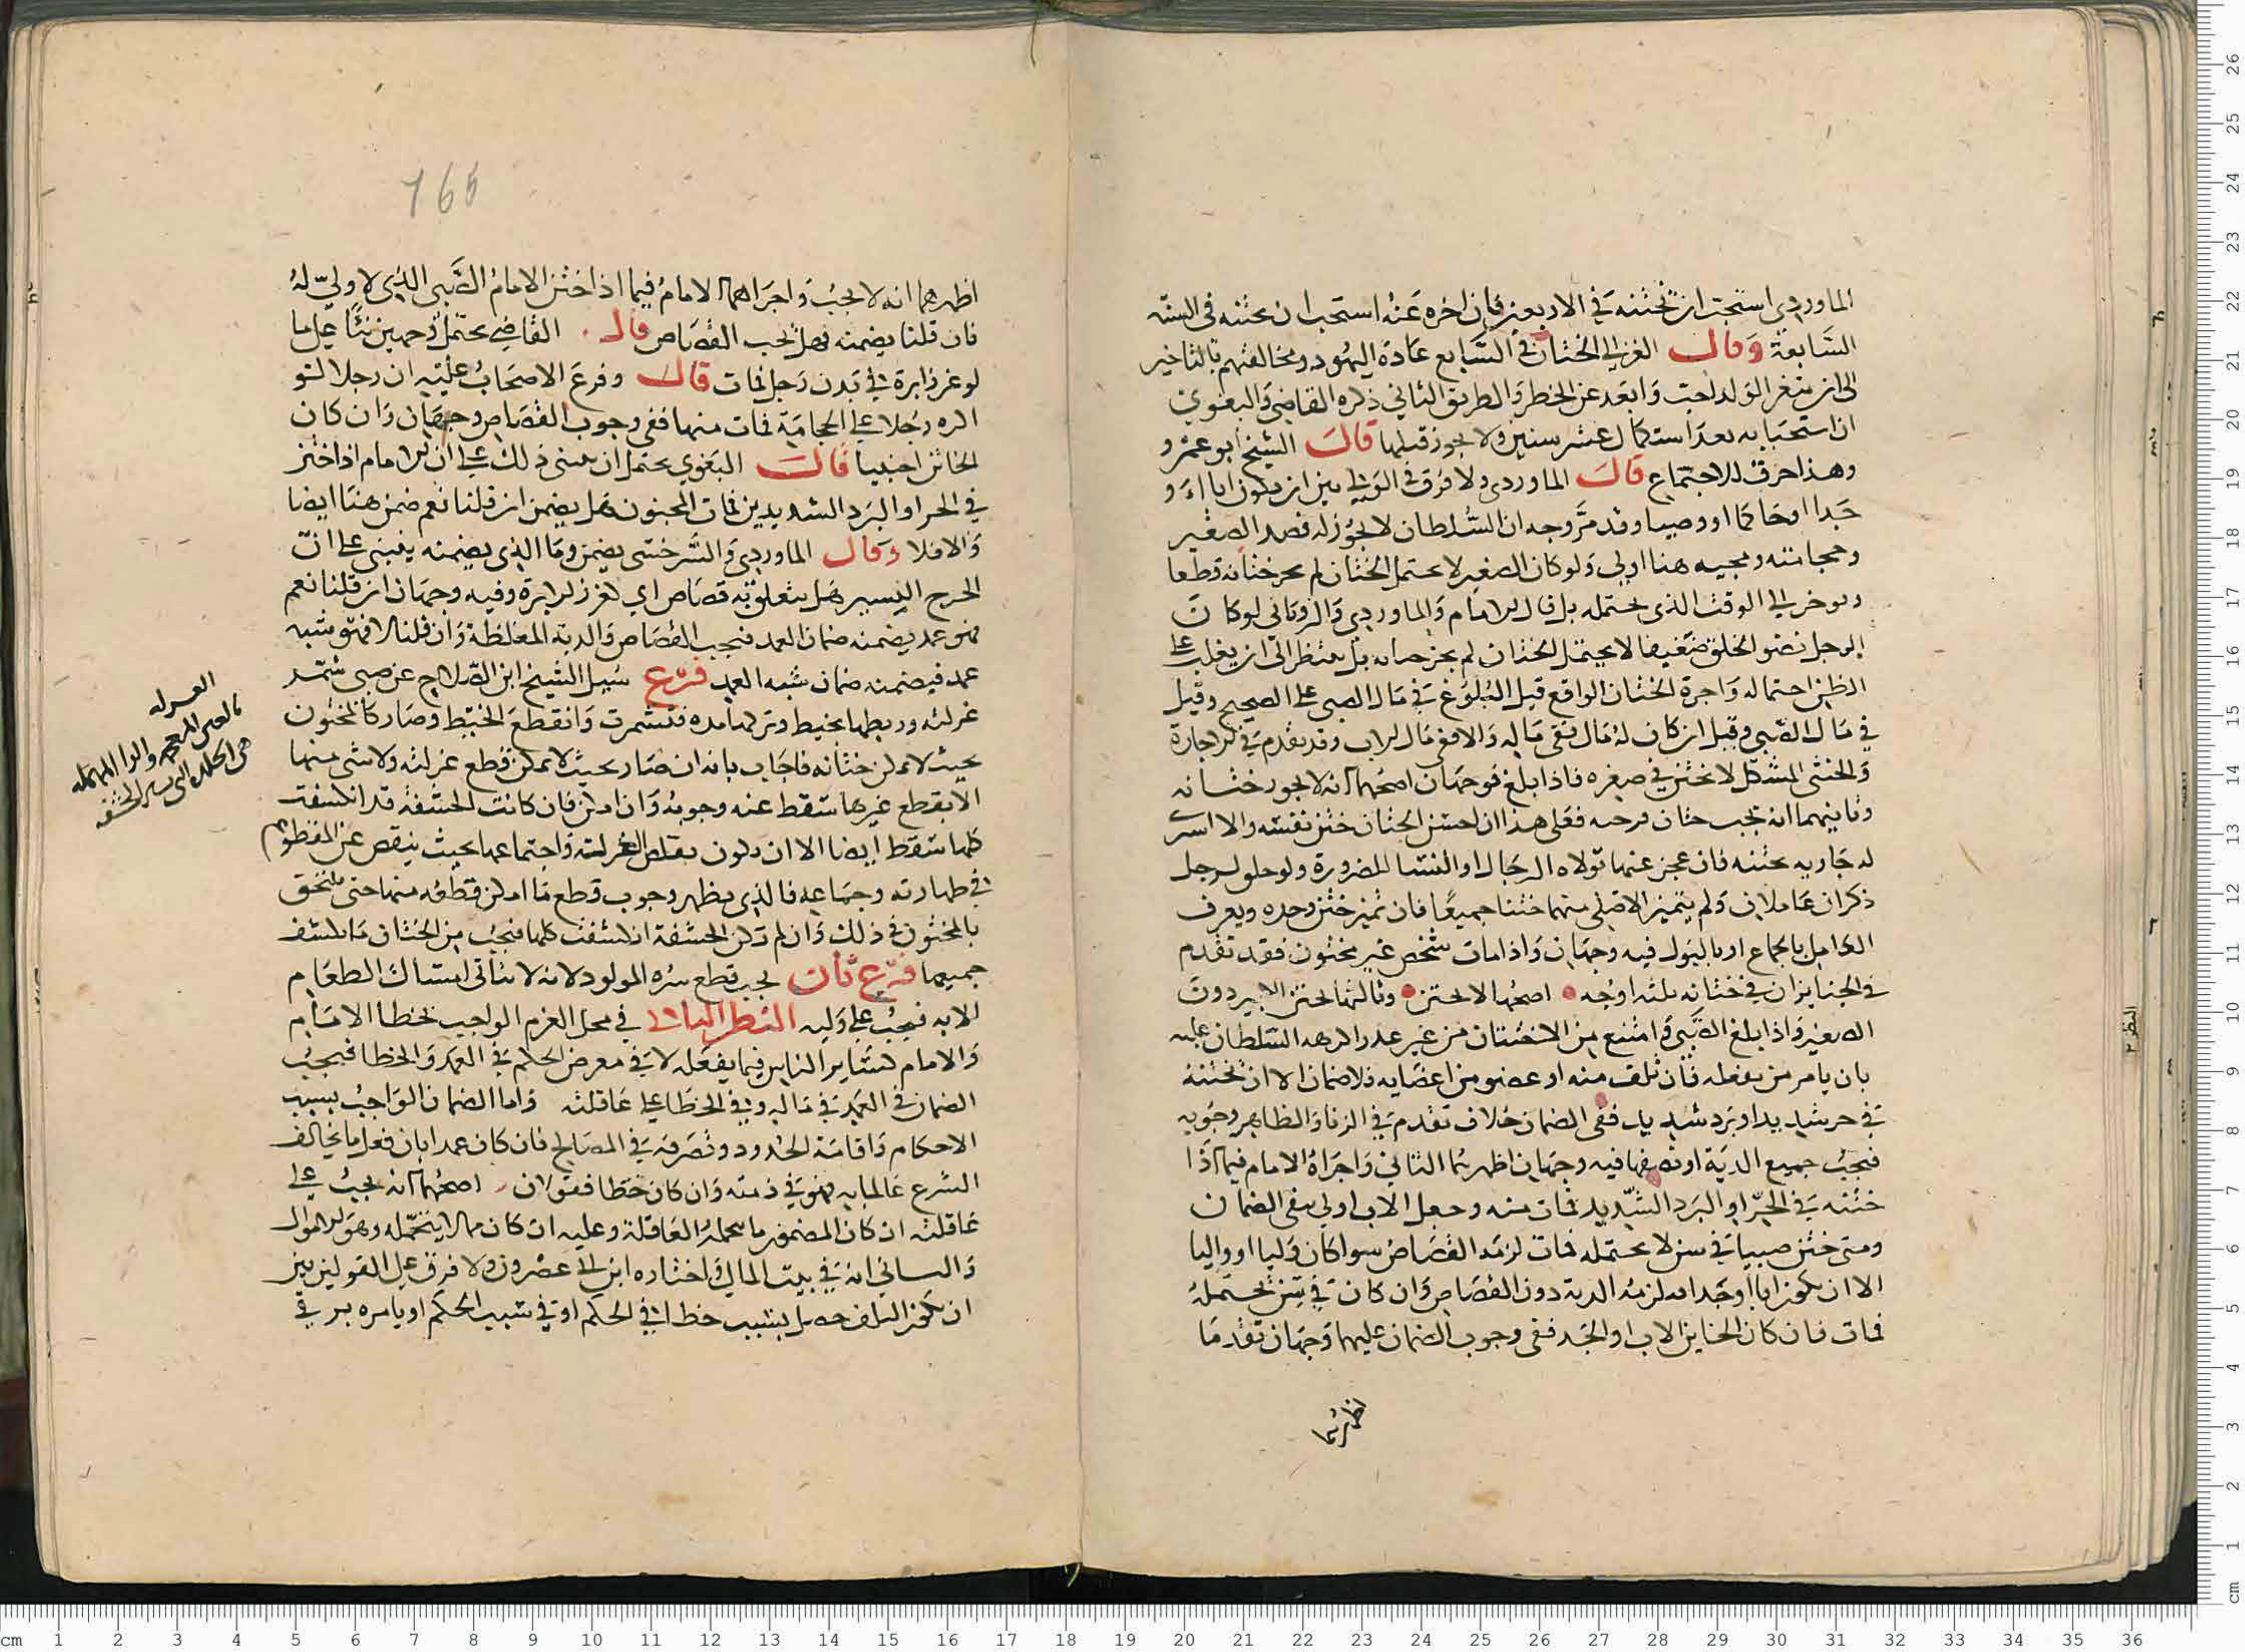 الماوردي استحب ان يختنه في الاربعين فان اخره عنه استحب ان يختنه في السنه
السابعة وقال الغزالي الختان في السابع عادة اليهود ومخالفتهم بالتاخير
الى ان يثغر الولد احب وابعد عن الخطر والطريق الثاني ذكره القاضي والبغوي
ان استحبابه بعد استكمال عشر سنين ولا يجوز قبلها قال الشيخ ابو عمرو
وهذا خرق للاجتماع قال الماوردي ولا فرق في الولي بين ان يكون ابا او
جدا او حاكما او وصيا وقد مر وجه ان السلطان لا يجوز له فصد الصغير
وحجامته ومجيه هنا اولى ولو كان الصغير لا يحتمل الختان لم يجز ختانه قطعا
ويوخر الى الوقت الذي يحتمله بل قال الامام والماوردي والروياني لو كان
الرجل نضو الخلق ضعيفا لا يحتمل الختان لم يجز ختانه بل ينتظر الى ان يغلب على
الظن احتماله واجرة الختان الواقع قبل البلوغ في مال الصبي على الصحيح وقيل
في مال الصبي وقيل ان كان له مال ففي ماله والا ففي مال الاب وقد تقدم في الاجارة
والخنثى المشكل لا يختن في صغره فاذا بلغ فوجهان اصحهما انه لا يجوز ختانه
وثانيهما انه يجب ختان فرجيه فعلى هذا ان احسن الختان ختن نفسه والا اشترى
له جارية تختنه فان عجز عنها تولاه الرجال او النسا للضرورة ولو خلق لرجل
ذكران عاملان ولم يتميز الاصلي منهما ختنا جميعا فان تميز ختن وحده ويعرف
العامل بالجماع او بالبول فيه وجهان واذا مات شخص غير مختون فقد تقدم
في الجنايز ان في ختانه ثلثه اوجه اصحها لا يختن وثالثها يختن الكبير دون
الصغير واذا بلغ الصبي وامتنع من الاختتان من غير عذر اكرهه السلطان عليه
بان يامر من يفعله فان تلف منه او عضو من اعضايه فلا ضمان الا ان يختنه
في حر شديد او برد شديد ففي الضمان خلاف تقدم في الزنا والظاهر وجوبه
فيجب جميع الدية او نصفها فيه وجهان اظهرهما الثاني واجراه الامام فيما اذا
ختنه في الحر او البرد الشديد فمات منه وجعل الاب اولى بنفي الضمان
ومتى ختن صبيا في سن لا يحتمله فمات لزمه القصاص سوا كان وليا او واليا
الا ان يكون ابا او جدا فيلزمه الدية دون القصاص وان كان في سن يحتمله
فمات فان كان الختان الاب او الجد ففي وجوب الضمان عليهما وجهان تقدما
اظهرهما
765
اظهرهما انه لا يجب واجراهما الامام فيما اذا ختن الامام الصبي الذي لا ولي له
فان قلنا يضمنه فهل يجب القصاص قال القاضي يحتمل وجهين بنا على ما
لو غرز ابرة في بدن رجل فمات قال وفرع الاصحاب عليه ان رجلا لو
اكره رجلا على الحجامة فمات منها ففي وجوب القصاص وجهان وان كان
الخاتن اجنبيا قال البغوي يحتمل ان يبنى ذلك على ان الامام اذا ختن
في الحر او البرد الشديدين فمات المختون هل يضمن ان قلنا نعم ضمن هنا ايضا
والا فلا وقال الماوردي والسرخسي يضمن وما الذي يضمنه ينبني على ان
الجرح اليسير هل يتعلق به قصاص اي كغرز الابرة وفيه وجهان ان قلنا نعم
فهو عمد يضمنه ضمان العمد فيجب القصاص والدية المغلظة وان قلنا لا فهو شبه
عمد فيضمنه ضمان شبه العمد فرع سيل الشيخ ابن الصلاح عن صبي شمد
غرلته وربطها بخيط وتركها مده فتشمرت وانقطع الخيط وصار كالمختون
بحيث لا يمكن ختانه فاجاب بانه ان صار بحيث لا يمكن قطع غرلته ولا شي منها
الا بقطع غيرها سقط عنه وجوبه وان امكن فان كانت الحشفة قد انكشفت
كلها سقط ايضا الا ان يكون تقلص الغرلة واجتماعها بحيث ينقص عن المقطوع
في طهارته وجماعه فالذي يظهر وجوب قطع ما امكن قطعه منها حتى يلتحق
بالمختون في ذلك وان لم تكن الحشفة انكشفت كلها فيجب من الختان ما يكشف
جميعها فرع ثان يجب قطع سره المولود لانه لا يتاتى امساك الطعام
الا به فيجب على وليه النظر الثاني في محل الغرم الواجب بخطا الامام
والامام كساير الناس فيما يفعله لا في معرض الحكم في العمد والخطا فيجب
الضمان في العمد في ماله وفي الخطا على عاقلته واما الضمان الواجب بسبب
الاحكام واقامة الحدود وتصرفه في المصالح فان كان عمدا بان فعل ما يخالف
الشرع عالما به فهو في ذمته وان كان خطا فقولان اصحهما انه يجب على
عاقلته ان كان المضمون مما يحمله العاقلة وعليه ان كان مما لا يتحمله وهو الاموال
والثاني انه في بيت المال واختاره ابن ابي عصرون ولا فرق على القولين بين
ان يكون التلف حصل بسبب خطا في الحكم او في سبب الحكم او يامره بر في
الغرله
بالغين المعجمه والرا المهمله
هي الجلده التي تستر الحشفه